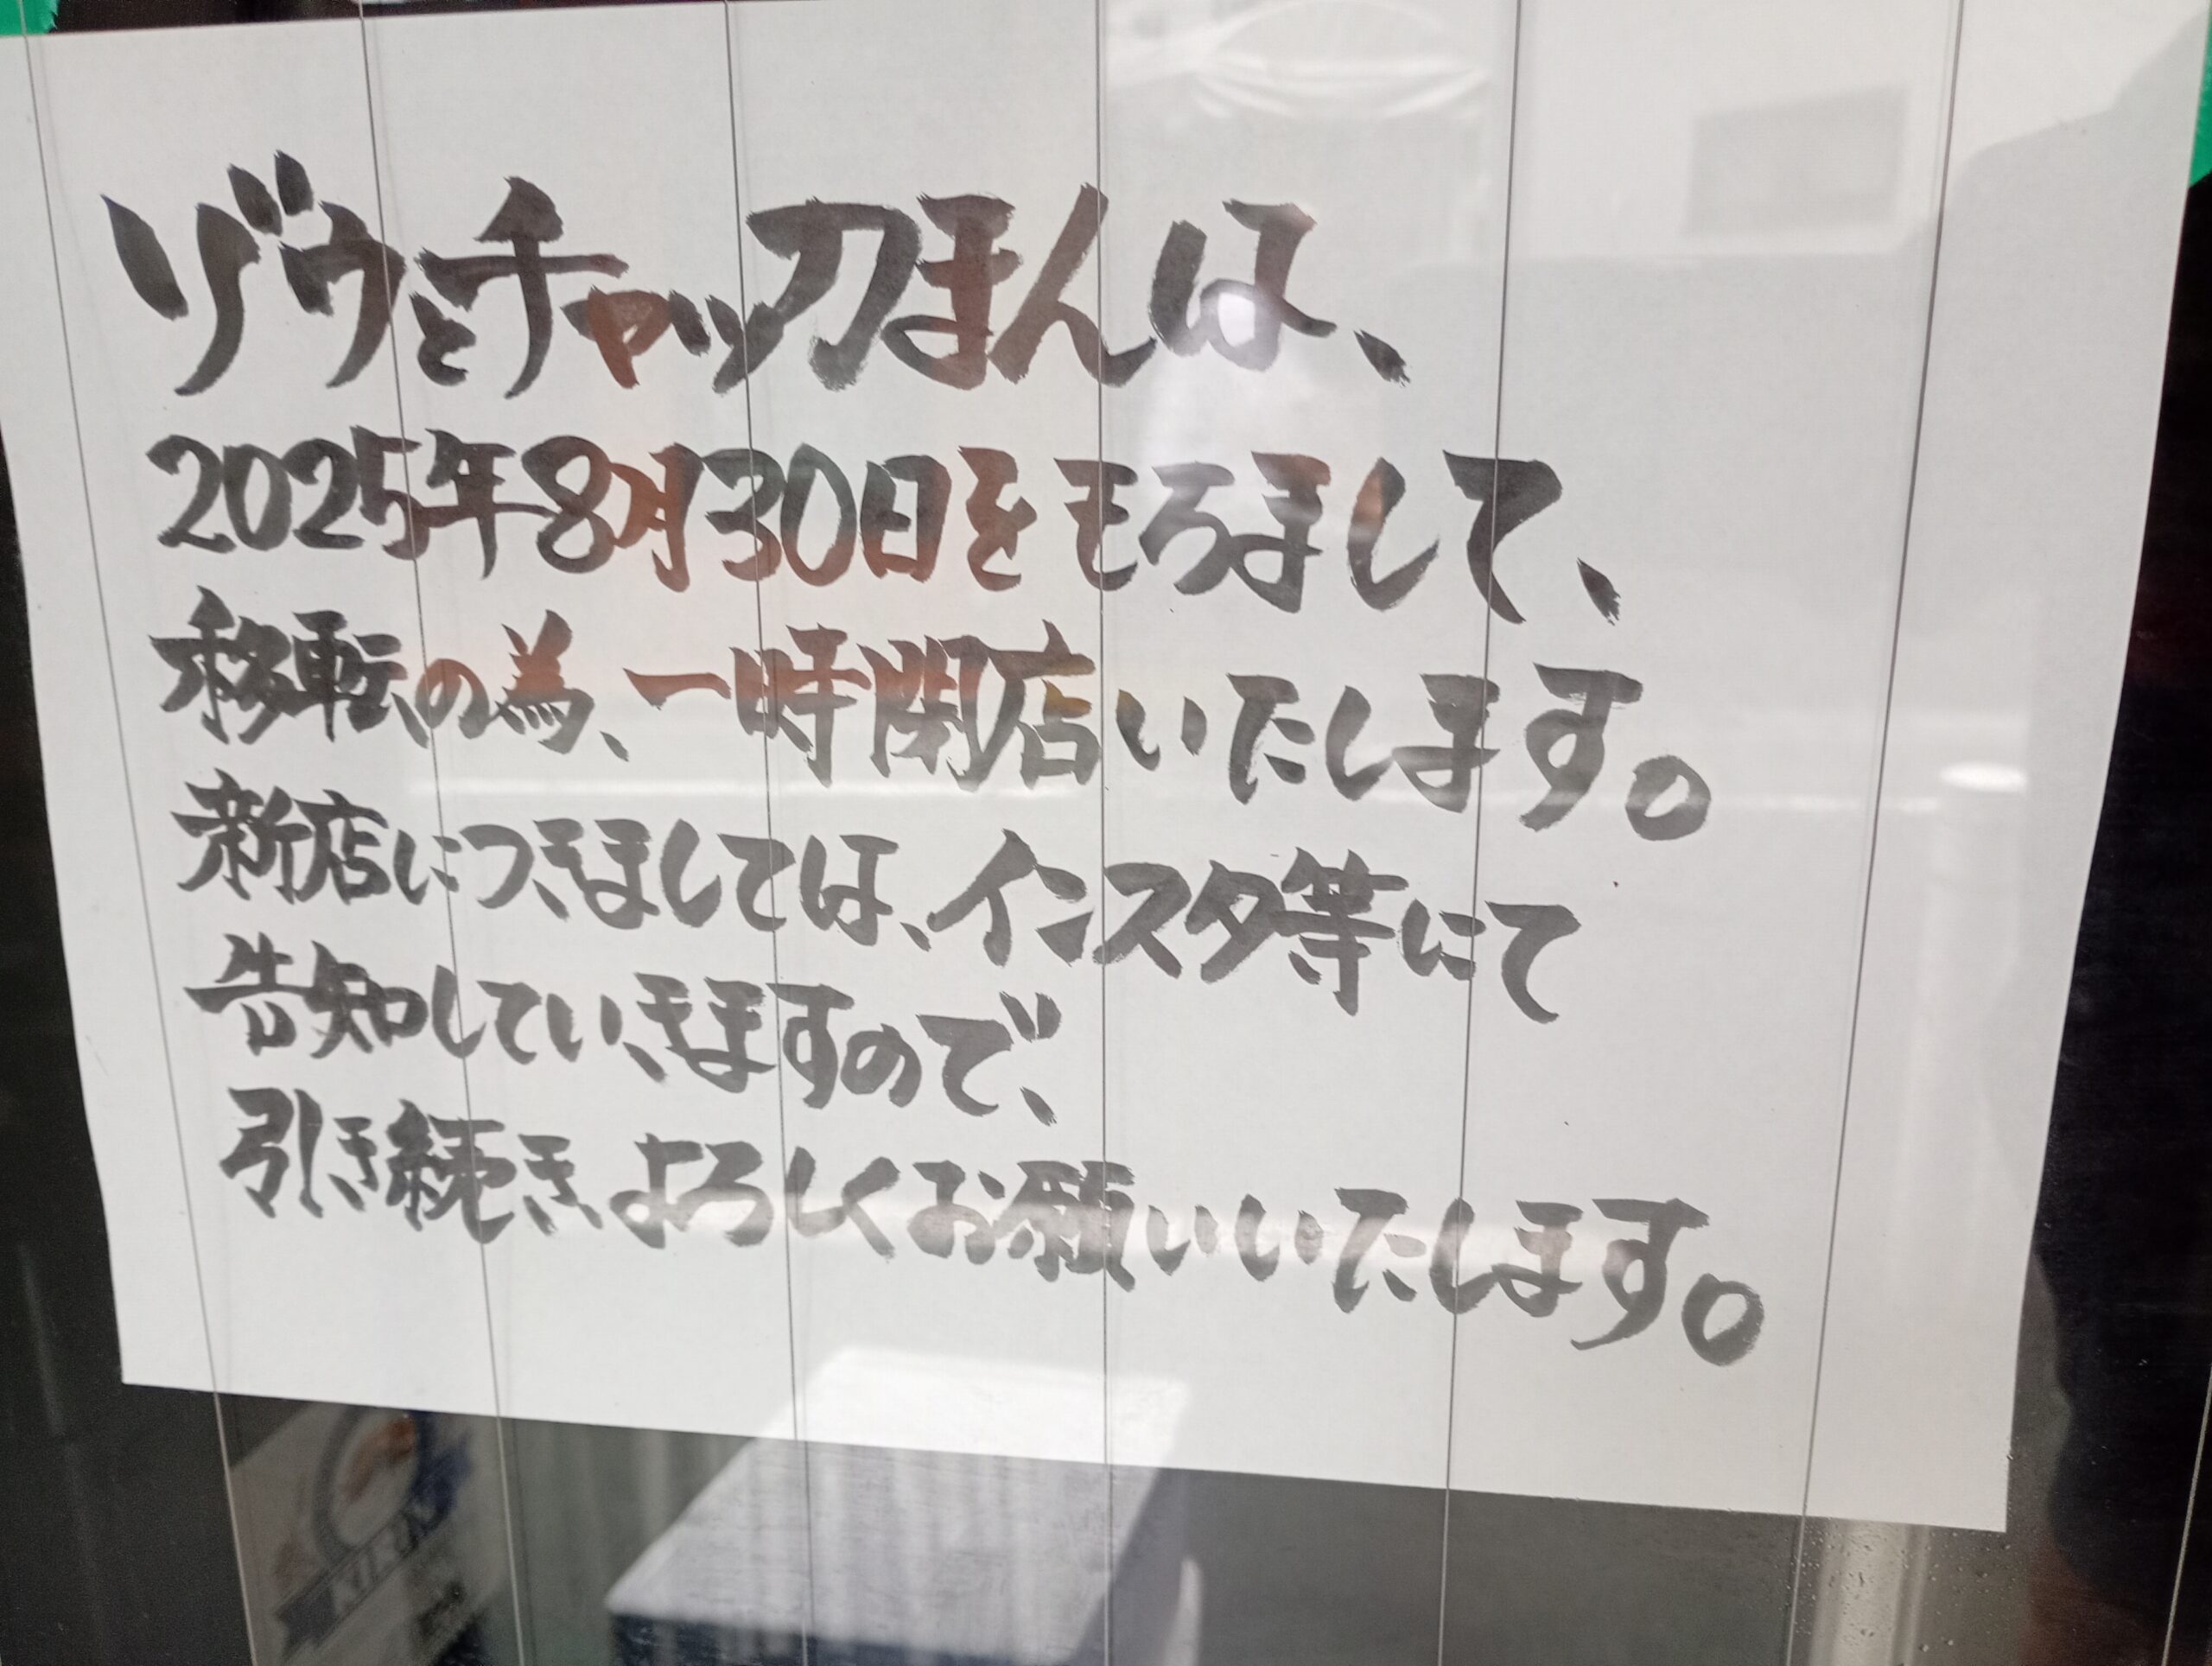 ゾウとチャッカまんは、
2025年8月30日をもろまして、
移転の為、一時閉店いたします。
新店につきましては、インスタ等にて
告知していきますので、
引き続きよろしくお願いいたします。
KIRIN